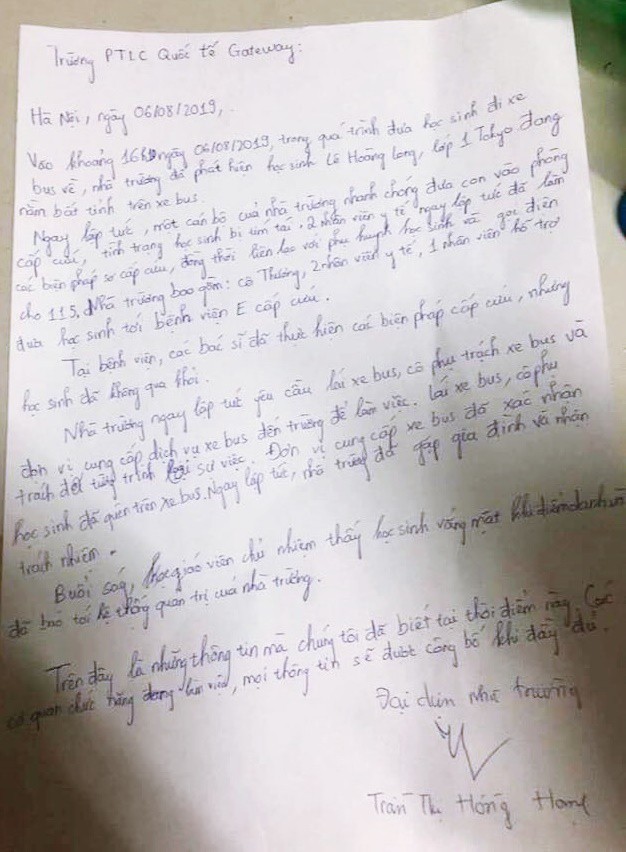 Trường PTLC Quốc tế Gateway:
Hà Nội, ngày 06/08/2019,
Vào khoảng 16h ngày 06/08/2019, trong quá trình đưa học sinh đi xe
bus về, nhà trường đã phát hiện học sinh Lê Hoàng Long, lớp 1 Tokyo đang
nằm bất tỉnh trên xe bus.
Ngay lập tức, một cán bộ của nhà trường nhanh chóng đưa con vào phòng
cấp cứu, tình trạng học sinh bị tím tái, 2 nhân viên y tế ngay lập tức đã làm
các biện pháp sơ cấp cứu, đồng thời liên lạc với phụ huynh học sinh và gọi điện
cho 115. Nhà trường bao gồm: cô Thương, 2 nhân viên y tế, 1 nhân viên hỗ trợ
đưa học sinh tới bệnh viện E cấp cứu.
Tại bệnh viện, các bác sĩ đã thực hiện các biện pháp cấp cứu, nhưng
học sinh đã không qua khỏi.
Nhà trường ngay lập tức yêu cầu lái xe bus, cô phụ trách xe bus và
đơn vị cung cấp dịch vụ xe bus đến trường để làm việc. Lái xe bus, cô phụ
trách đã tường trình lại sự việc. Đơn vị cung cấp xe bus đã xác nhận
học sinh đã quên trên xe bus. Ngay lập tức, nhà trường đã gặp gia đình và nhận
trách nhiệm.
Buổi sáng, giáo viên chủ nhiệm thấy học sinh vắng mặt khi điểm danh và
đã báo tới hệ thống quản trị của nhà trường.
Trên đây là những thông tin mà chúng tôi đã biết tại thời điểm này. Các
cơ quan chức năng đang làm việc, mọi thông tin sẽ được công bố khi đầy đủ.
Đại diện nhà trường
Trần Thị Hồng Hạnh